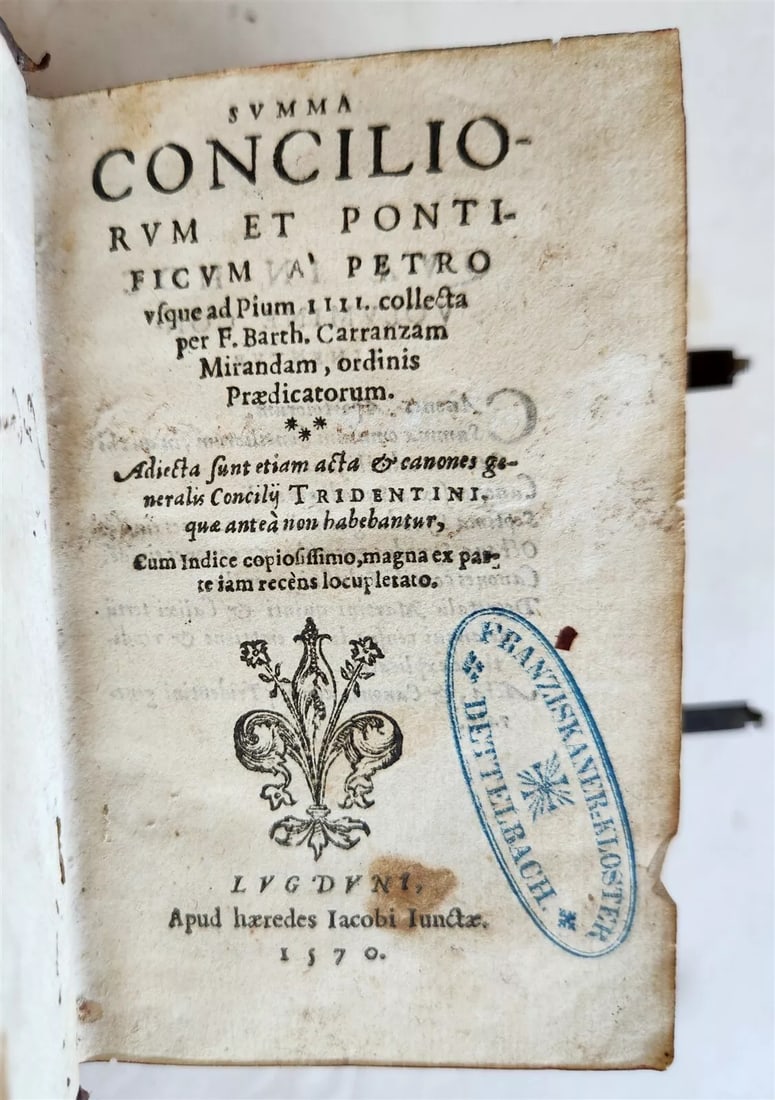 SVMMA
CONCILIO-
RVM ET PONTI-
FICVM A' PETRO
vſque ad Pium IIII. collecta
per F. Barth. Carranzam
Mirandam, ordinis
Prædicatorum.
***
Adiecta ſunt etiam acta & canones ge-
neralis Concilij TRIDENTINI,
quæ anteà non habebantur,
Cum Indice copioſiſſimo, magna ex par-
te iam recèns locupletato.
LVGDVNI,
Apud hæredes Iacobi Iunctæ.
1570.
FRANZISKANER-KLOSTER
* DETTELBACH. *